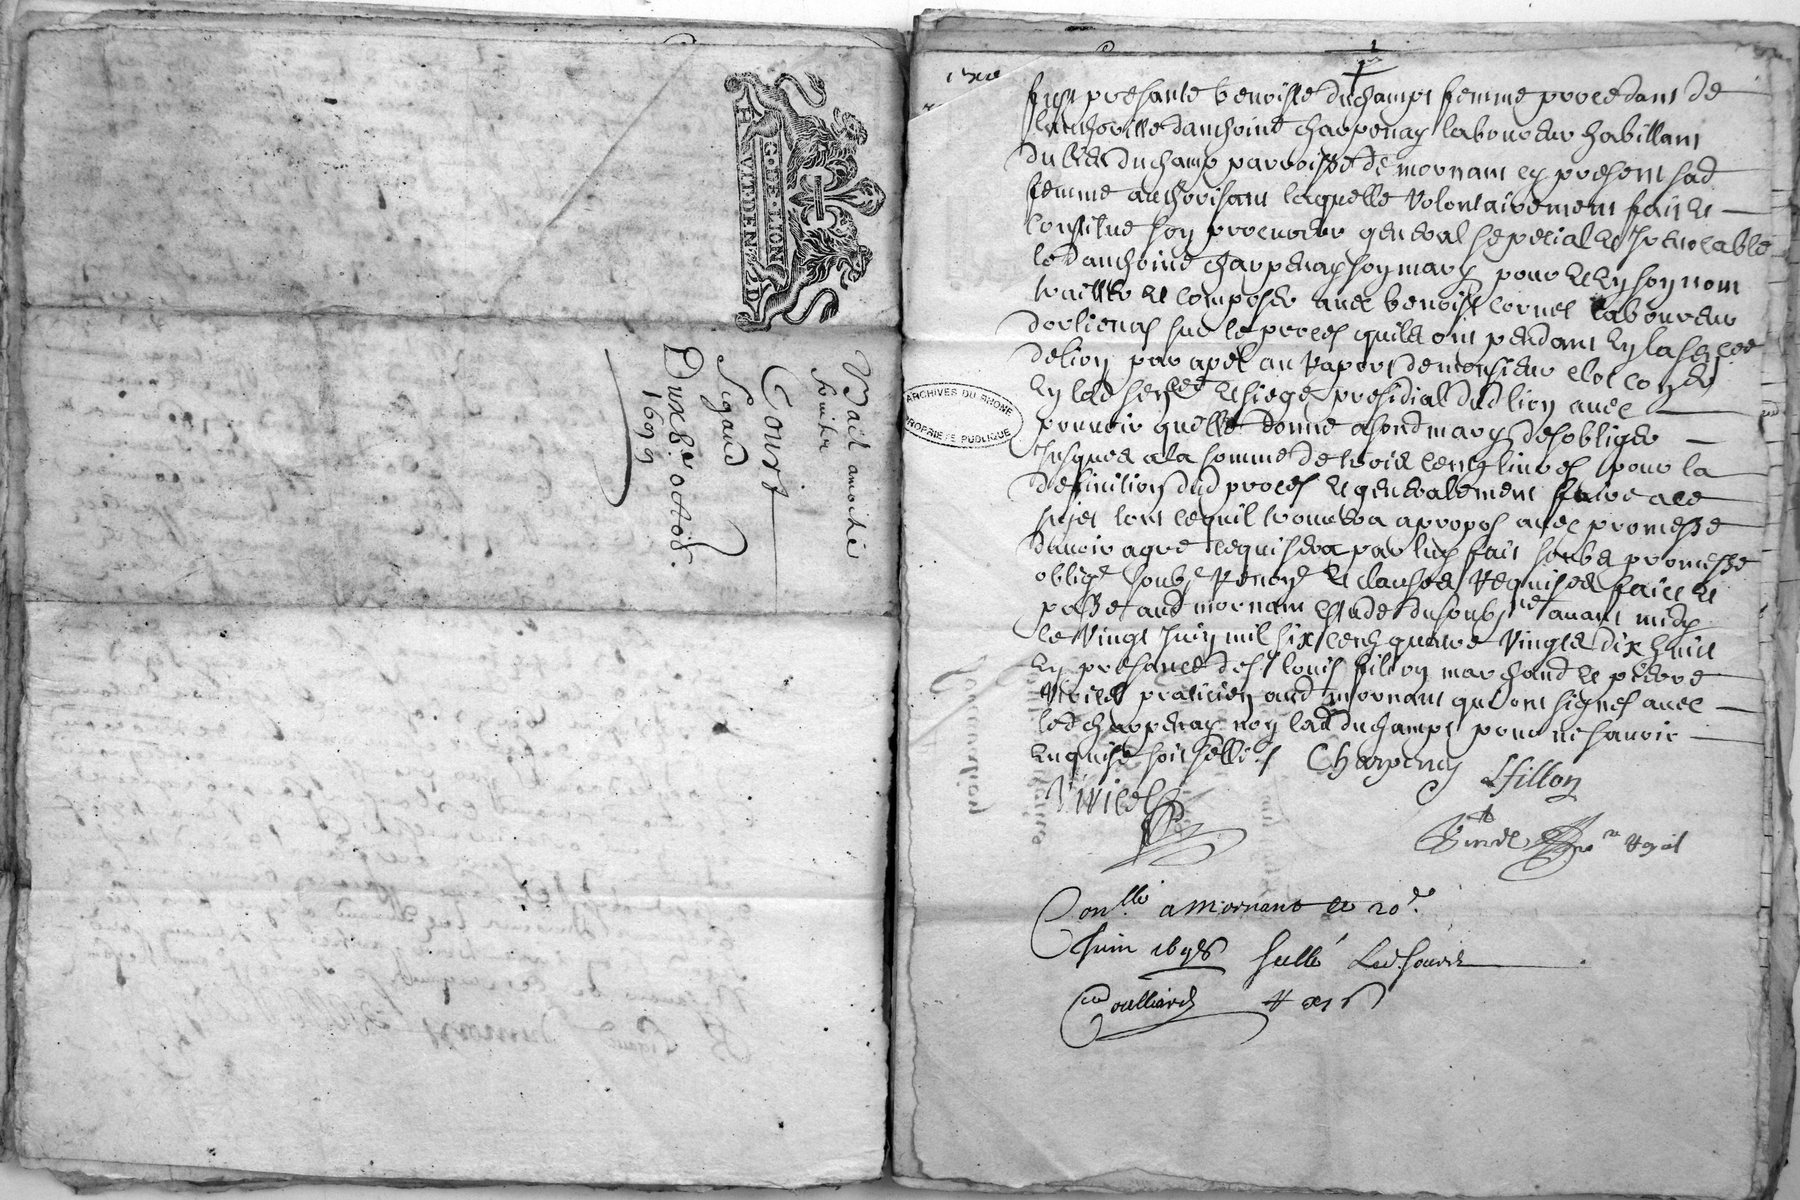 G. DE LION
HVIT DEN. 2 D
Bail a moitié
fruits
Court
Sigaud
Du xe 8bre octob.
1699
ARCHIVES DU RHONE
PROPRIETE PUBLIQUE
fust presante benoiste duchampt femme procedant de
lauthorite danthoine charpenay laboureur habittant
du lieu du champ parroisse de mornant cy present sad
femme authorisant laquelle volontairement fait et
constitue son procureur general sepecial et irrevocable
led anthoine charpenay son mary pour et en son nom
traitter et composer avec benoist cornet laboureur
dorlienas sur le proces quils ont pendant en la sen.cée
de lion par apel au raport de monsieur clot con.er
en lad sen.cée et siege presidial dud lion avec
pouvoir quelle donne a sond mary desobliger
jusques a la somme de trois cents livres pour la
definition dud proces et generalement faire a ce
sujet tout ce quil trouvera a propos avec promesse
davoir agre ce qui sera par luy fait soubs promesse
oblig. soub. renon. et clauses requises faict et
passé aud mornant estude du soub.né avant midy
le vingt juin mil six cents quatre vingts dix huit
en presance de s.r louis fillion marchand et pierre
praticien aud mornant qui ont signes avec
led charpenay non lad duchampt pour ne savoir
enquise soit sellé
Charpenay
Lfillon
Con.llé a Mornant le 20e
Juin 1698 sellé led. jour